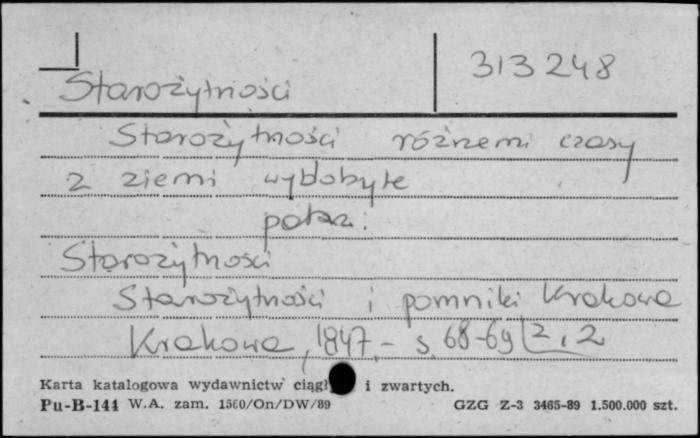 313248
Starożytności
Starożytności różnemi czasy
z ziemi wydobyte
patrz:
Starożytności
Starożytności i pomniki Krakowa
Krakowa, 1847,- s. 68-69 z. 2
Karta katalogowa wydawnictw ciągł i zwartych.
Pu-B-144 W.A. zam. 1560/On/DW/89 GZG Z-3 3465-89 1.500.000 szt.